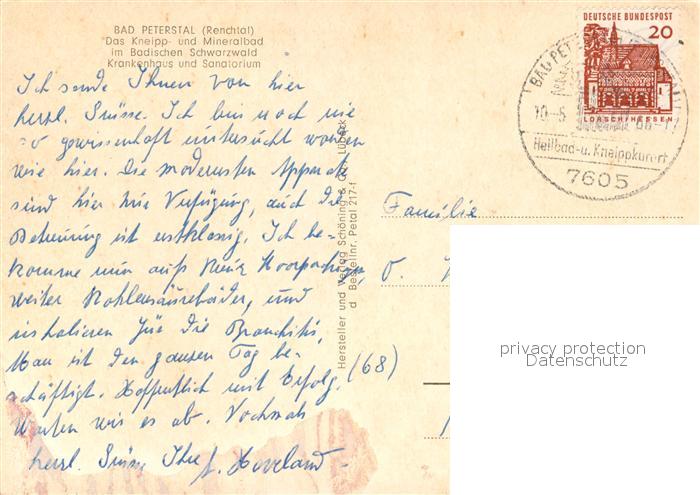 BAD PETERSTAL (Renchtal)
Das Kneipp- und Mineralbad
im Badischen Schwarzwald
Krankenhaus und Sanatorium
Ich sende Ihnen von hier
herzl. Grüsse. Ich bin noch nie
so gewissenhaft untersucht worden
wie hier. Die modernsten Apparate
sind hier zur Verfügung, auch die
Betreuung ist erstklassig. Ich be-
komme nun aufs Kreuz Moorpackungen,
weiter Kohlensäurebäder, und
inhalieren für die Bronchitis,
Man ist den ganzen Tag be-
schäftigt. Hoffentlich mit Erfolg.
Warten wir es ab. Nochmals
herzl. Grüsse Ihre
(68)
Hersteller und Verlag Schöning & Co., Lübeck
Bestellnr. Petal 217-f
DEUTSCHE BUNDESPOST
20
LORSCH/HESSEN
BAD PETERSTAL
10.-5. 68-17
Heilbad-u. Kneippkurort
7605
Familie
privacy protection
Datenschutz